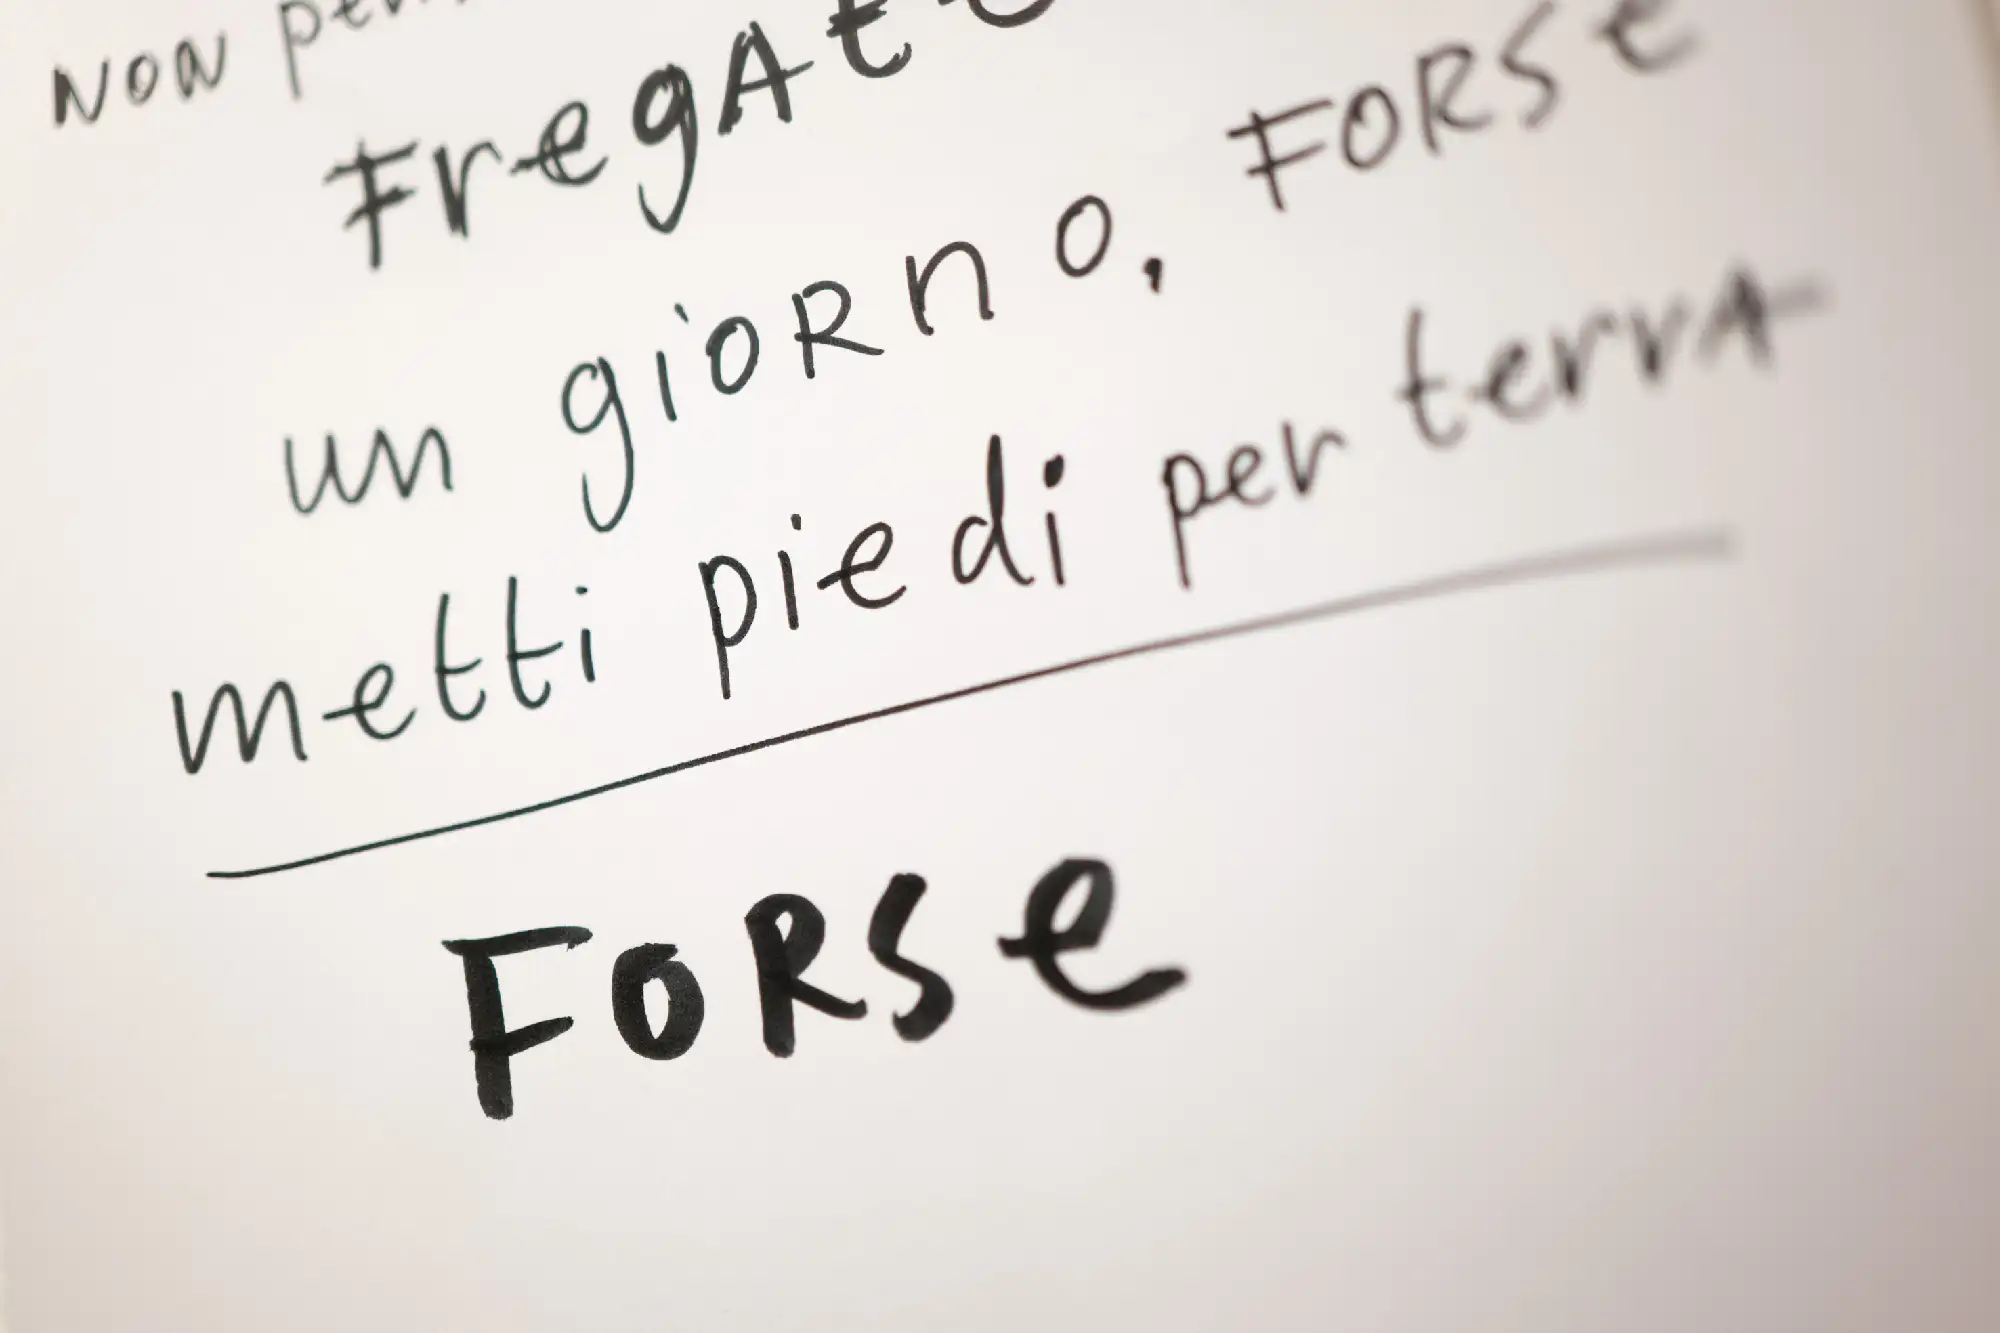 NON
FregAte
un giorno, FORSe
metti piedi per terrA
FORSe